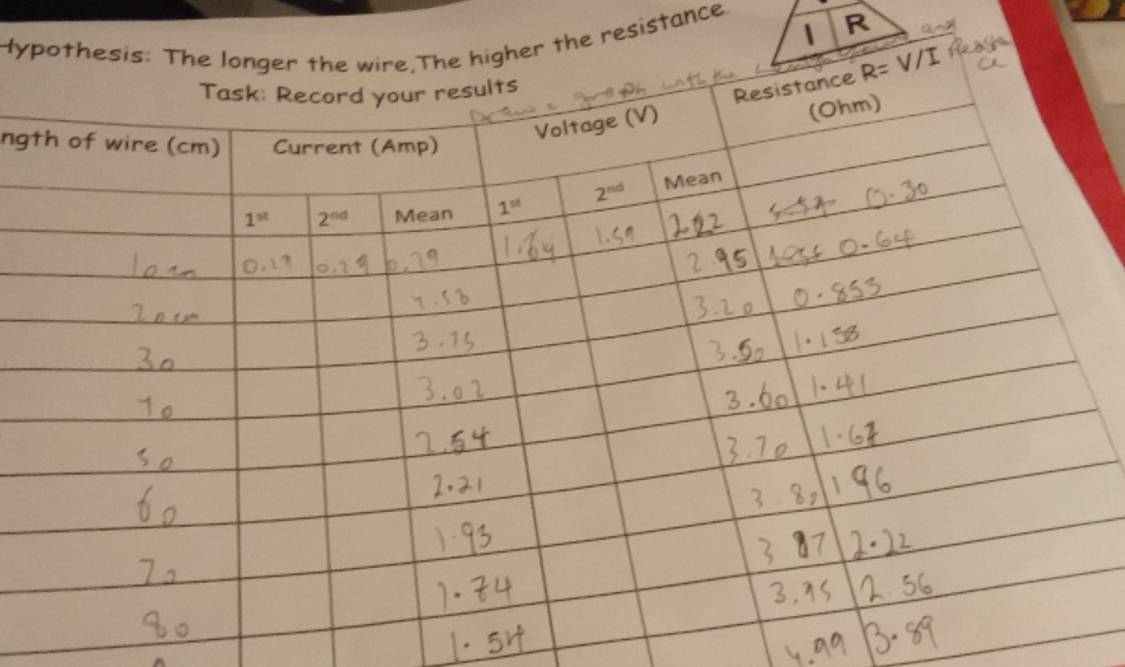 Hypothesis: The longer the wire, The higher the resistance.
I R
Task: Record your results
Draw a graph with the and
ngth of wire (cm) Current (Amp) Voltage (V) Resistance R= V/I (Ohm)
1st 2nd Mean 1st 2nd Mean
10cm 0.29 0.29 1.64 1.59 0.30
20cm 4.58 2.95 0.64
30 3.75 3.20 0.853
40 3.02 3.50 1.158
50 2.54 3.60 1.41
60 2.21 3.70 1.67
70 1.93 3.80 1 96
80 1.74 3.87 2.22
1.54 3.95 2.56
4.99 3.89